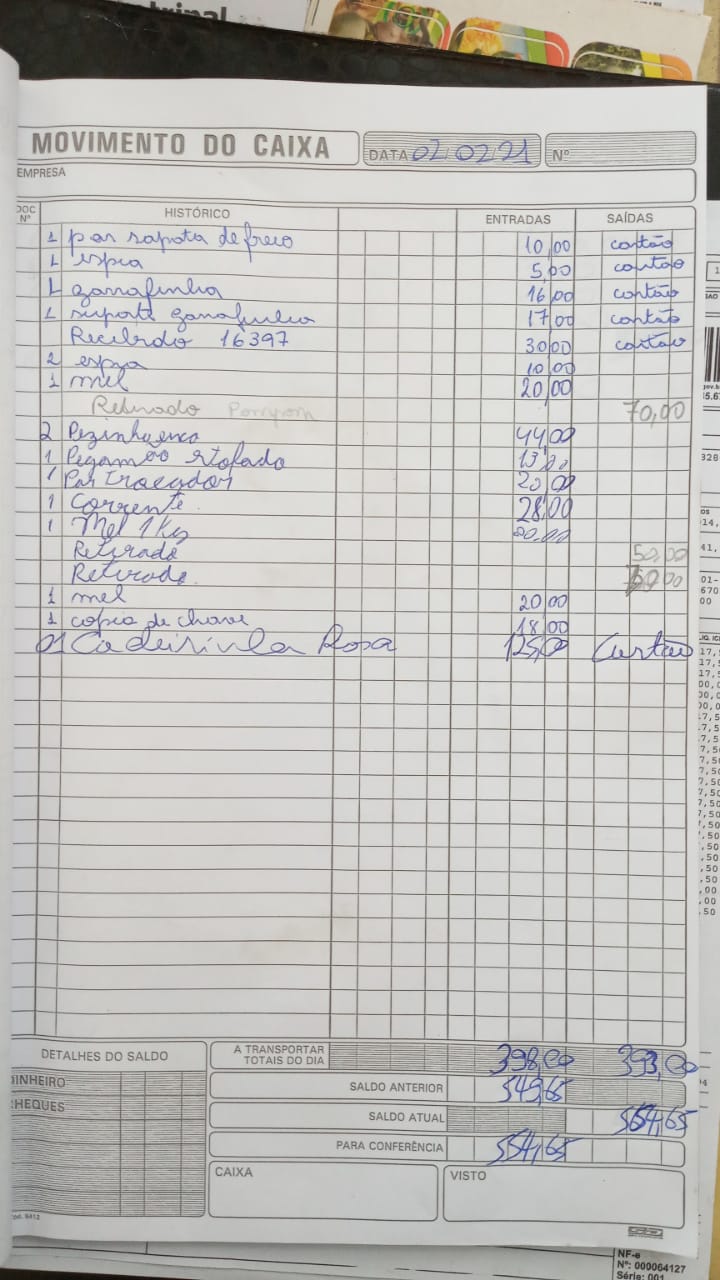 MOVIMENTO DO CAIXA DATA 02/02/21 Nº
EMPRESA
DOC Nº HISTÓRICO ENTRADAS SAÍDAS
1 par sapata de freio 10,00 cartão
1 espia 5,00 cartão
1 garrafinha 16,00 cartão
1 suporte garrafinha 17,00 cartão
Recibido 16397 30,00 cartão
2 espia 10,00
1 mel 20,00
Retirado Pompom 70,00
2 44,00
1 13,00
1 Par 20,00
1 Corrente 28,00
1 Mel 1 Kg
Retirado 50,00
Retirado
1 mel 20,00
1 copia de chave 18,00
01 Cadeirinha Rosa 125,00 Cartão
DETALHES DO SALDO
A TRANSPORTAR
TOTAIS DO DIA 398,00 393,00
INHEIRO
SALDO ANTERIOR 549,65
HEQUES
SALDO ATUAL
PARA CONFERÊNCIA 554,65
CAIXA VISTO
NF-e
Nº: 000064127
Série: 001